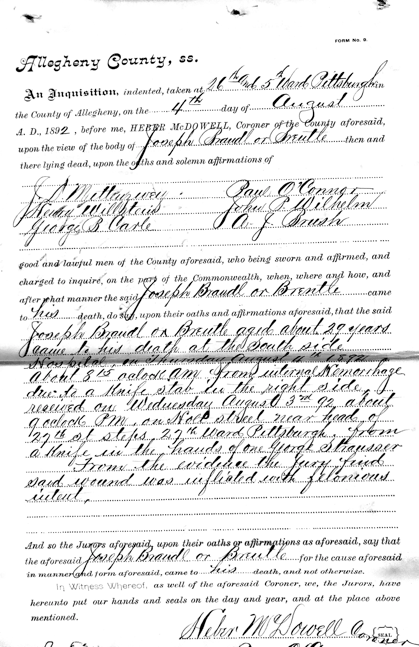 FORM No. 9.
Allegheny County, ss.
An Inquisition, indented, taken at 26th and 5th Ward Pittsburgh in
the County of Allegheny, on the 4th day of August
A. D., 1892, before me, HEBER McDOWELL, Coroner of the County aforesaid,
upon the view of the body of Joseph Braudl or Breutle then and
there lying dead, upon the oaths and solemn affirmations of
J. Paul O'Connor
Henry Willstein John P Wilhelm
George B Carle A J Brush
good and lawful men of the County aforesaid, who being sworn and affirmed, and
charged to inquire, on the part of the Commonwealth, when, where and how, and
after what manner the said Joseph Braudl or Breutle came
to his death, do say, upon their oaths and affirmations aforesaid, that the said
Joseph Braudl or Breutle aged about 29 years
came to his death at the South side
Hospital, on Thursday August 4
about 8 oclock A.M. from internal Hemorhage
due to a Knife stab in the right side,
reseved on Wednesday August 3rd 92 about
9 oclock P.M. on street near head of
27th st steps, 27th Ward Pittsburgh, from
a Knife in the hands of one George Strausser
From the evidence the Jury find
said wound was inflicted with felonious
intent.
And so the Jurors aforesaid, upon their oaths or affirmations as aforesaid, say that
the aforesaid Joseph Braudl or Breutle for the cause aforesaid
in manner and form aforesaid, came to his death, and not otherwise.
In Witness Whereof, as well of the aforesaid Coroner, we, the Jurors, have
hereunto put our hands and seals on the day and year, and at the place above
mentioned.
Heber McDowell Coroner SEAL